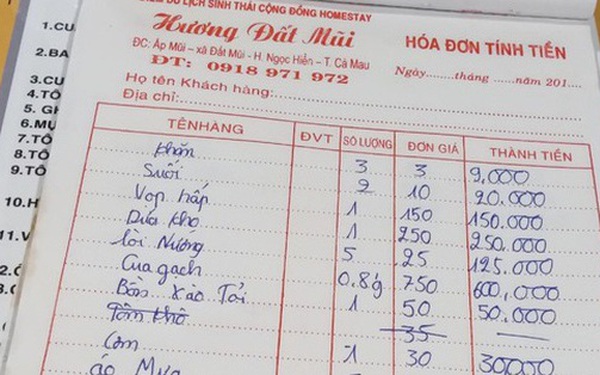 DU LỊCH SINH THÁI CỘNG ĐỒNG HOMESTAY
Hương Đất Mũi
ĐC: Ấp Mũi - xã Đất Mũi - H. Ngọc Hiển - T. Cà Mau
ĐT: 0918 971 972
HÓA ĐƠN TÍNH TIỀN
Ngày........tháng ......năm 201....
Họ tên Khách hàng:
Địa chỉ:
TÊN HÀNG ĐVT SỐ LƯỢNG ĐƠN GIÁ THÀNH TIỀN
khăn 3 3 9,000
Suối 2 10 20.000
Vọp hấp 1 150 150.000
Dứa kho 1 250 250.000
lòi Nướng 5 25 125.000
Cua gạch 0.8g 750 600,000
Bồn Xào Tỏi 1 50 50.000
Tôm khô 35
Cơm 1 30 30000
áo Mưa
1.CU
2.BA
3.CU
4. TÔ
5. GH
6. MU
7. TÔ
8. TÔ
9. TÔ
10.H
11.V